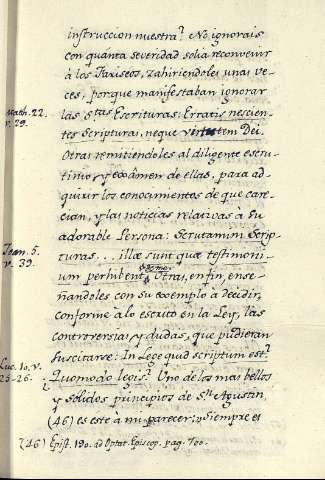 instruccion nuestra? No ignorais
con quanta severidad solia reconvenir
à los Fariseos, zahiriendoles unas ve-
ces, porque manifestaban ignorar
Math. 22. v. 29.
las Stas Escrituras: Erratis nescien-
tes Scripturas, neque virtutem Dei.
Otras remitiendoles al diligente escru-
tinio y exàmen de ellas, para ad-
quirir los conocimientos de que care-
cian, y las noticias relativas a su
adorable Persona: Scrutamini Scrip-
Joan. 5. v. 39.
turas... illæ sunt quæ testimoni-
um perhibent de me. Otras, en fin, ense-
ñandoles con su exemplo à decidir,
conforme à lo escrito en la Ley, las
controversias y dudas, que pudieran
suscitarse: In Lege quid scriptum est?
Luc. 10. v. 25-26.
Quomodo legis? Uno de los mas bellos
y solidos principios de Sn Agustin
(46) es este à mi parecer: Siempre es
(46) Epist. 190. ad Optat. Episcop. pag. 700.